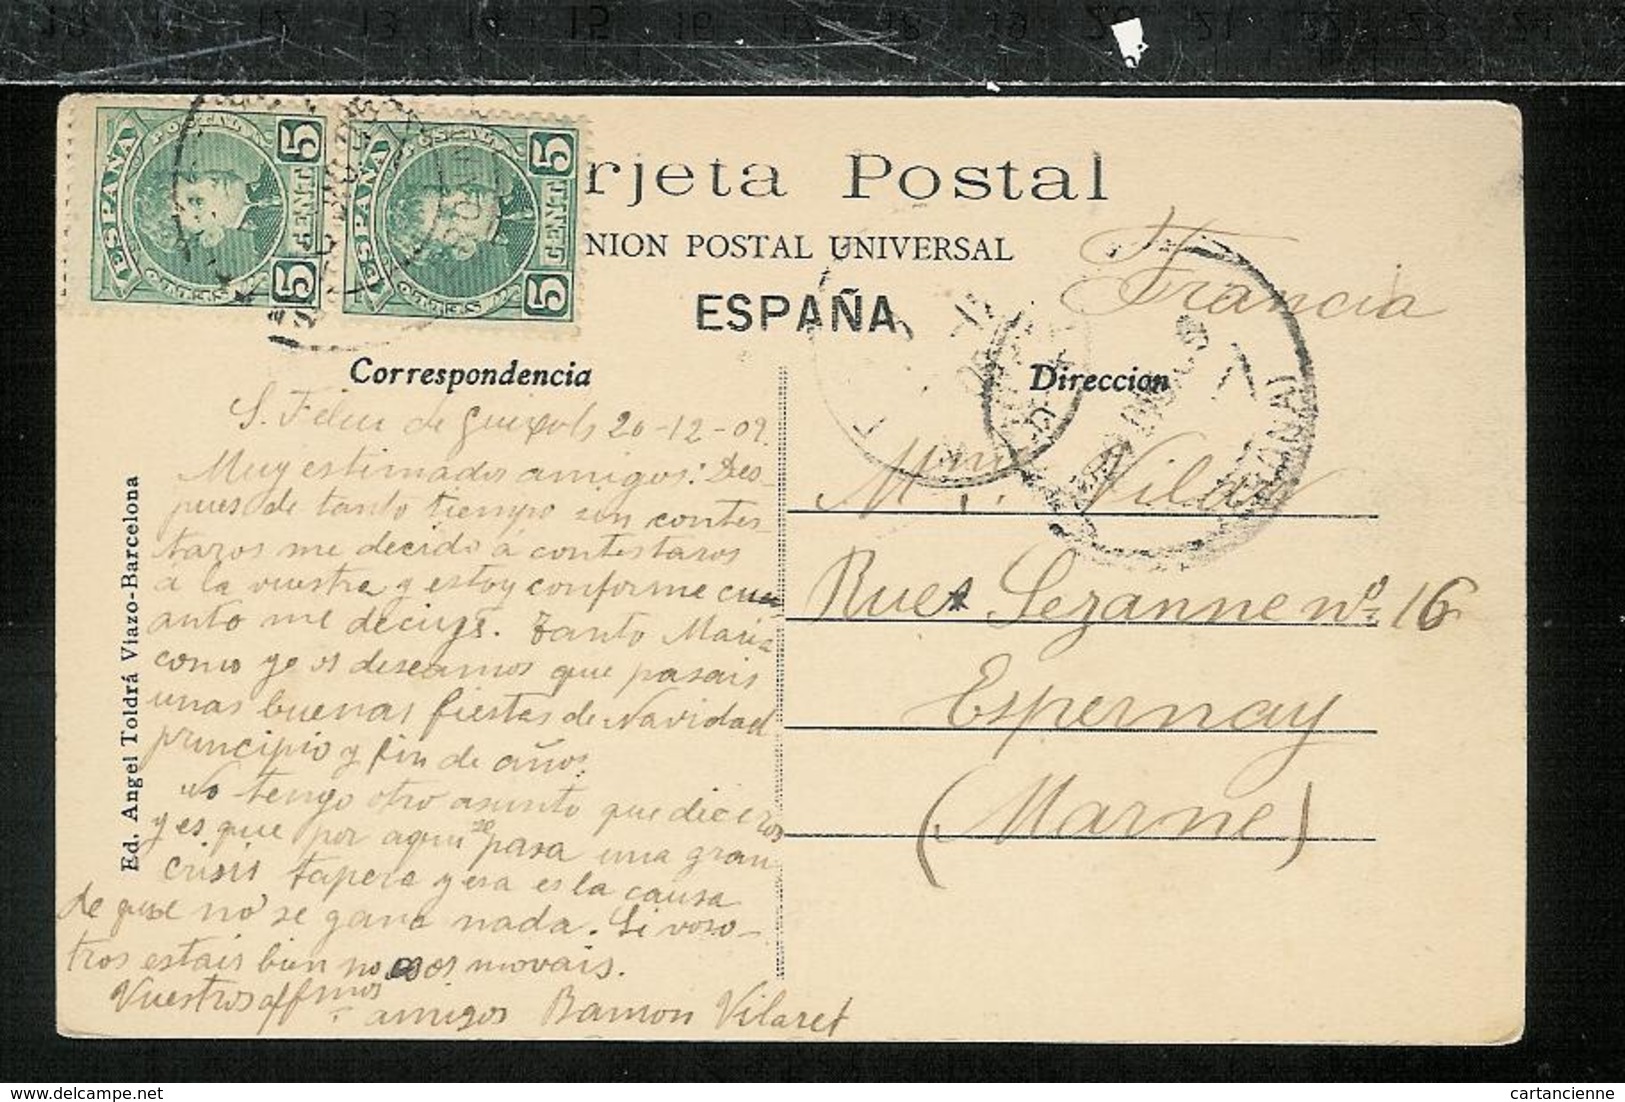 Tarjeta Postal
UNION POSTAL UNIVERSAL
ESPAÑA
ESPAÑA
POSTAL
CENT
5
5
ESPAÑA
POSTAL
CENT
5
5
Correspondencia
Direccion
Francia
S. Feliu de Guixols 20-12-09.
Muy estimados amigos: Des-
pues de tanto tiempo sin contes-
taros me decido á contestaros
a la vuestra y estoy conforme cuu
anto me decíys. Tanto Maria
como yo os deseamos que pasais
unas buenas fiestas de Navidad
principio y fin de años.
No tengo otro asunto que deciros
y es que por aqui se pasa una gran
crisis tapera y esa es la causa
de que no se gana nada. Si voso-
tros estais bien no os movais.
Vuestros affmos
amigos Ramon Vilaret
Mme Vilar
Rue Sezanne nº 16
Espernay
(Marne)
Ed. Angel Toldrá Viazo-Barcelona
delcampe.net
cartancienne